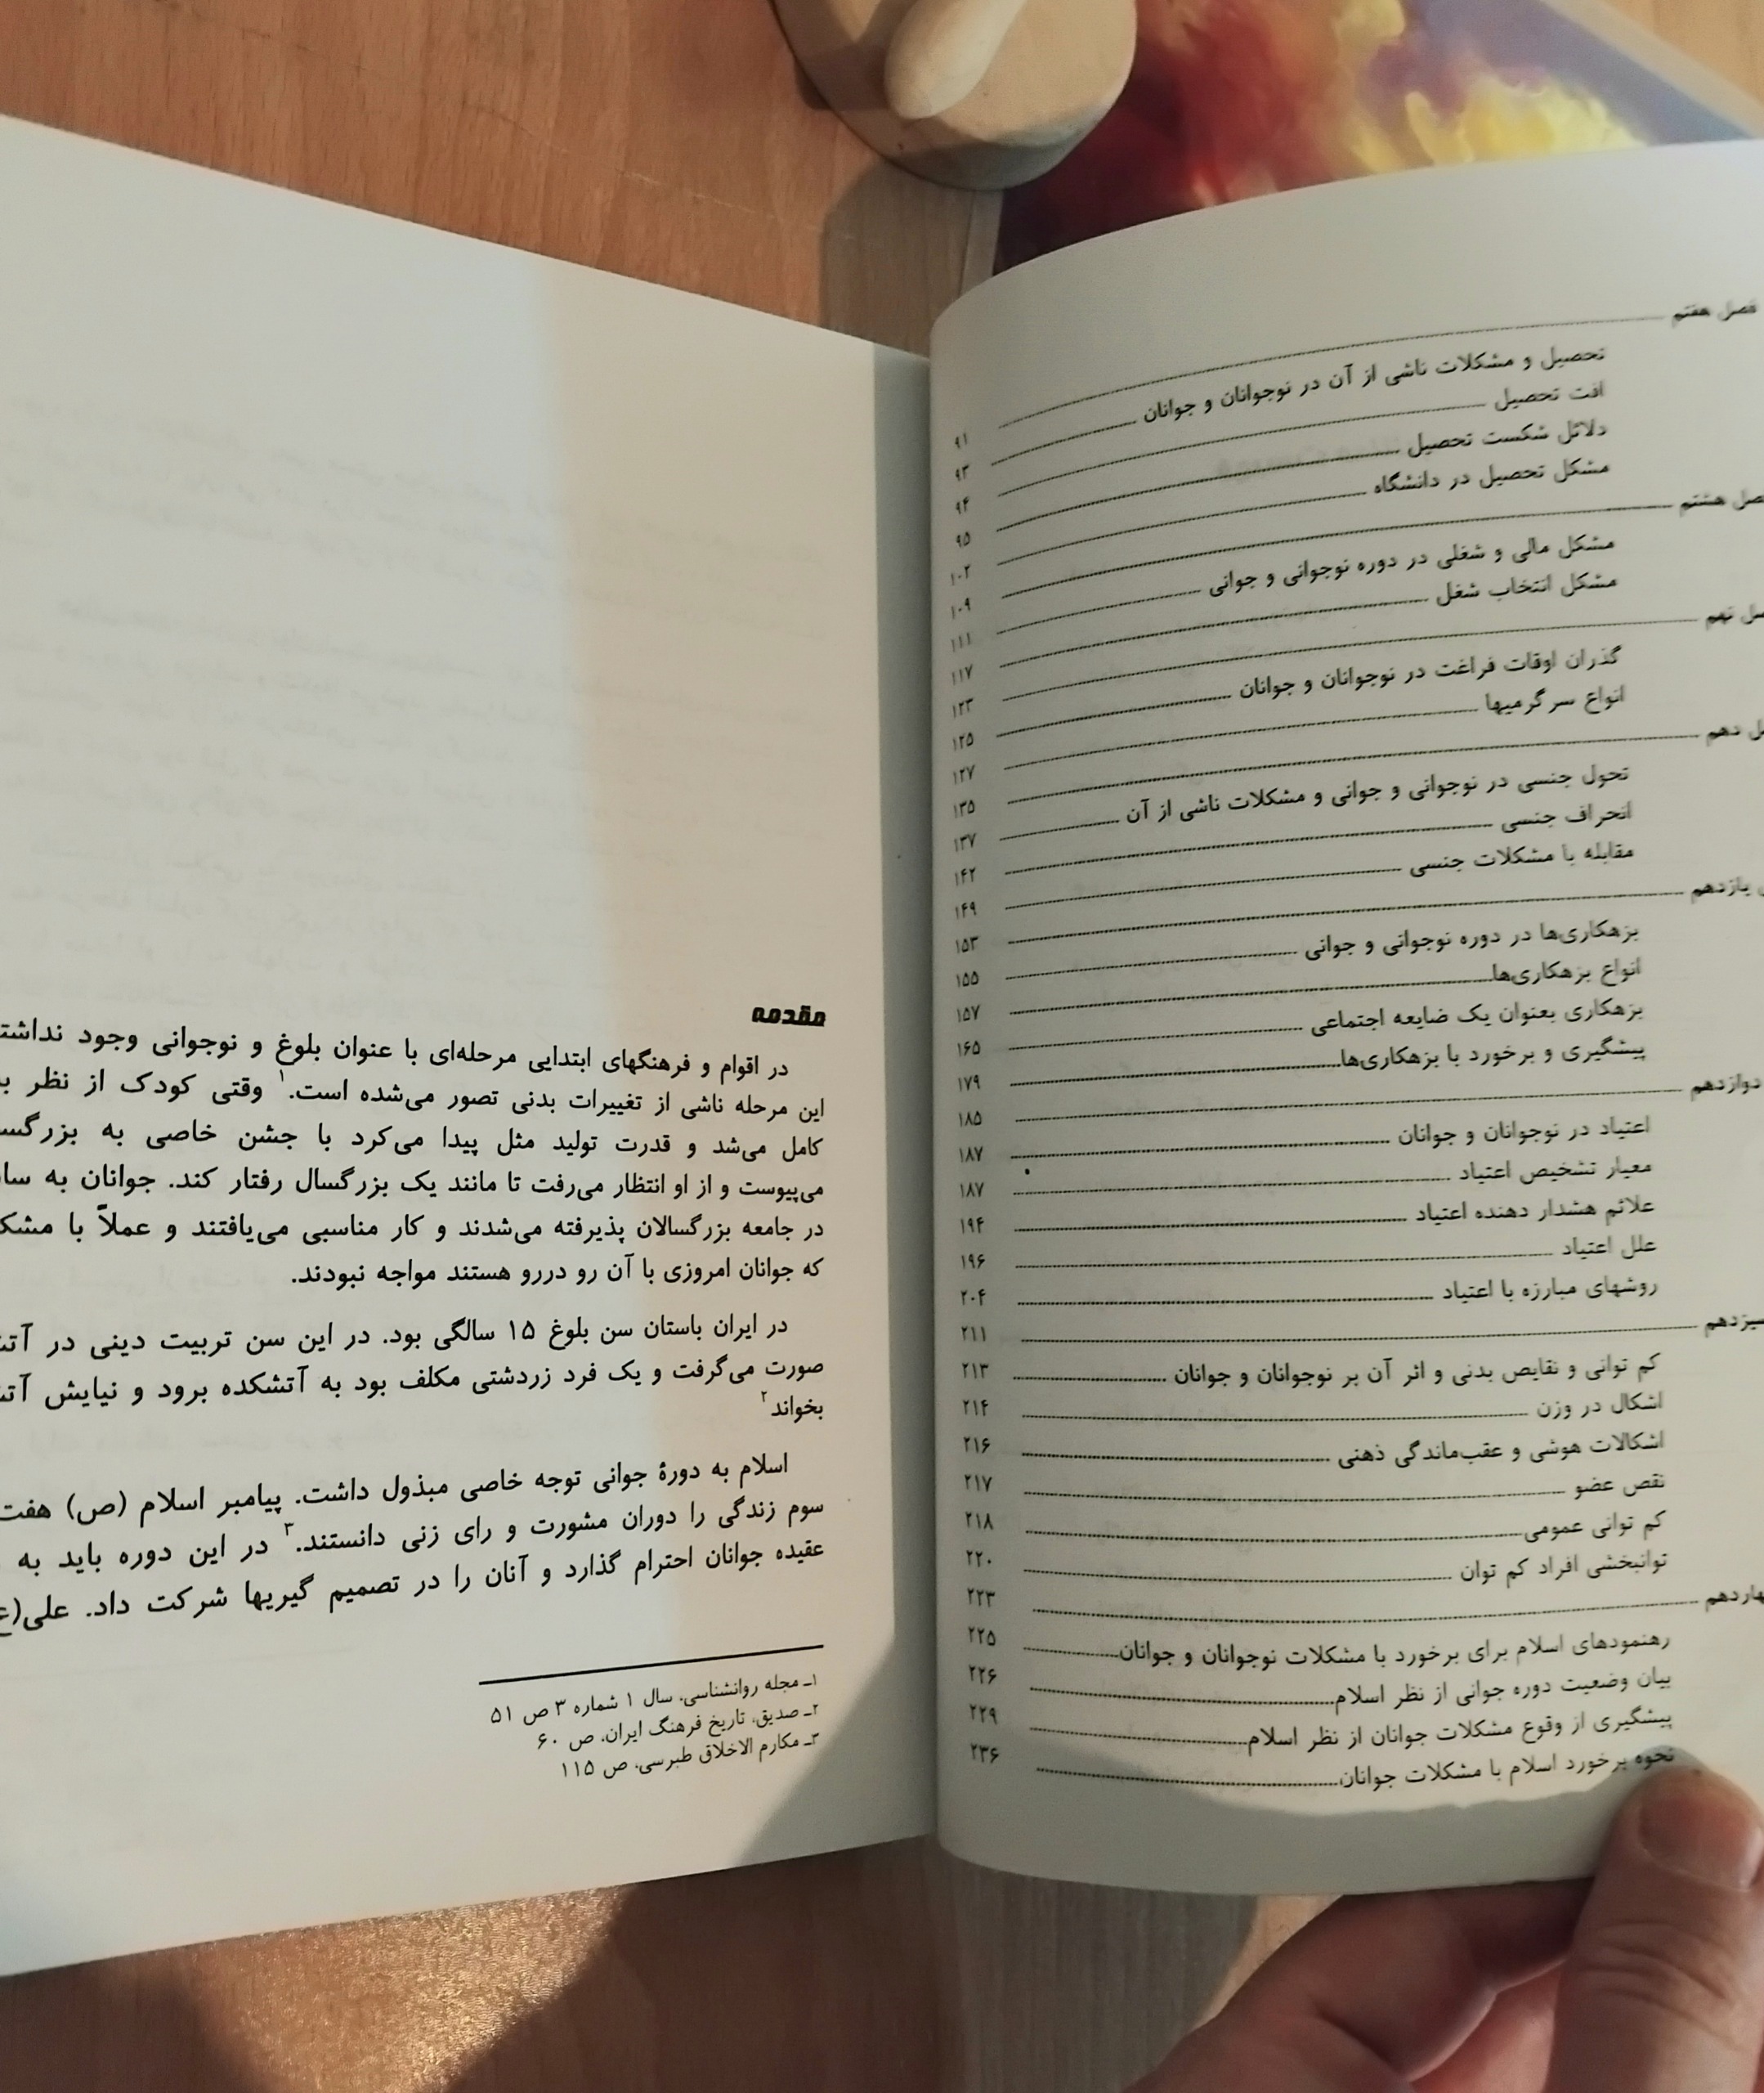 فصل هفتم ........ ۹۱
تحصیل و مشکلات ناشی از آن در نوجوانان و جوانان ........ ۹۳
افت تحصیل ........ ۹۴
دلائل شکست تحصیل ........ ۹۵
مشکل تحصیل در دانشگاه ........ ۱۰۲
هشتم ........ ۱۰۹
مشکل مالی و شغلی در دوره نوجوانی و جوانی ........ ۱۱۱
مشکل انتخاب شغل ........ ۱۱۷
نهم ........ ۱۲۳
گذران اوقات فراغت در نوجوانان و جوانان ........ ۱۲۵
انواع سرگرمیها ........ ۱۲۷
دهم ........ ۱۳۵
تحول جنسی در نوجوانی و جوانی و مشکلات ناشی از آن ........ ۱۳۷
انحراف جنسی ........ ۱۴۲
مقابله با مشکلات جنسی ........ ۱۴۹
یازدهم ........ ۱۵۳
بزهکاری‌ها در دوره نوجوانی و جوانی ........ ۱۵۵
انواع بزهکاری‌ها ........ ۱۵۷
بزهکاری بعنوان یک ضایعه اجتماعی ........ ۱۶۵
پیشگیری و برخورد با بزهکاری‌ها ........ ۱۷۹
دوازدهم ........ ۱۸۵
اعتیاد در نوجوانان و جوانان ........ ۱۸۷
معیار تشخیص اعتیاد ........ ۱۸۷
علائم هشدار دهنده اعتیاد ........ ۱۹۴
علل اعتیاد ........ ۱۹۶
روشهای مبارزه با اعتیاد ........ ۲۰۴
سیزدهم ........ ۲۱۱
کم توانی و نقایص بدنی و اثر آن بر نوجوانان و جوانان ........ ۲۱۳
اشکال در وزن ........ ۲۱۴
اشکالات هوشی و عقب‌ماندگی ذهنی ........ ۲۱۶
نقص عضو ........ ۲۱۷
کم توانی عمومی ........ ۲۱۸
توانبخشی افراد کم توان ........ ۲۲۰
........ ۲۲۳
رهنمودهای اسلام برای برخورد با مشکلات نوجوانان و جوانان ........ ۲۲۵
بیان وضعیت دوره جوانی از نظر اسلام ........ ۲۲۶
پیشگیری از وقوع مشکلات جوانان از نظر اسلام ........ ۲۲۹
نحوه برخورد اسلام با مشکلات جوانان ........ ۲۳۶
مقدمه
در اقوام و فرهنگهای ابتدایی مرحله‌ای با عنوان بلوغ و نوجوانی وجود
این مرحله ناشی از تغییرات بدنی تصور می‌شده است.۱ وقتی کودک از نظر
کامل می‌شد و قدرت تولید مثل پیدا می‌کرد با جشن خاصی به
می‌پیوست و از او انتظار می‌رفت تا مانند یک بزرگسال رفتار کند. جوانان به
در جامعه بزرگسالان پذیرفته می‌شدند و کار مناسبی می‌یافتند و عملاً با
که جوانان امروزی با آن رو دررو هستند مواجه نبودند.
در ایران باستان سن بلوغ ۱۵ سالگی بود. در این سن تربیت دینی در
صورت می‌گرفت و یک فرد زردشتی مکلف بود به آتشکده برود و نیایش
بخواند۲
اسلام به دورۀ جوانی توجه خاصی مبذول داشت. پیامبر اسلام (ص) هفت
سوم زندگی را دوران مشورت و رای زنی دانستند.۳ در این دوره باید به
عقیده جوانان احترام گذارد و آنان را در تصمیم گیریها شرکت داد. علی(ع
۱ـ مجله روانشناسی، سال ۱ شماره ۳ ص ۵۱
۲ـ صدیق، تاریخ فرهنگ ایران، ص ۶۰
۳ـ مکارم الاخلاق طبرسی، ص ۱۱۵